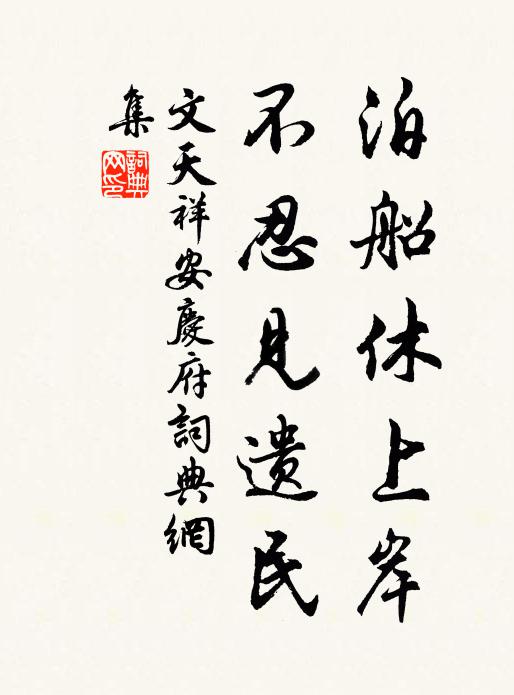 泊船休上岸
不忍見遺民
文天祥安慶府詞典網
集
詞典网印